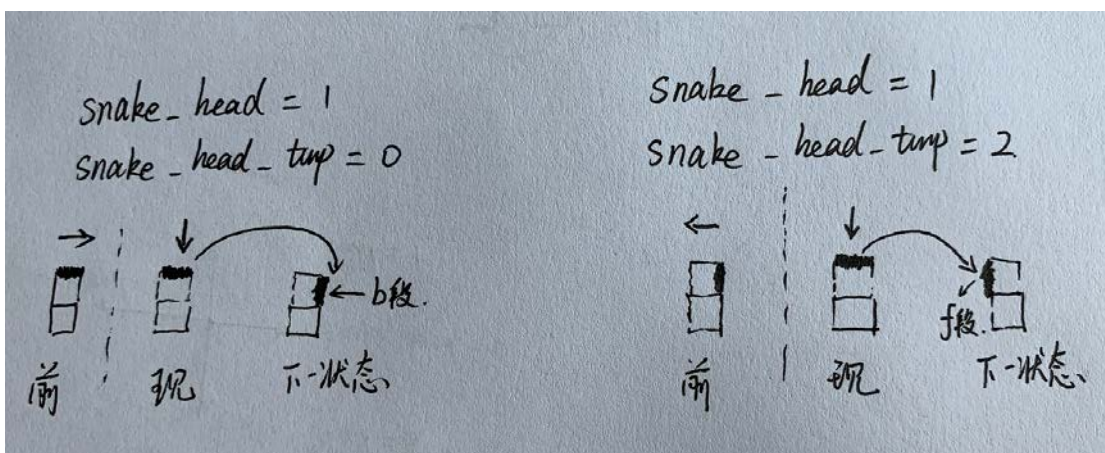 snake_head = 1
snake_head_tmp = 0
b段.
前
现
下一状态
snake_head = 1
snake_head_tmp = 2
f段.
前
现
下一状态